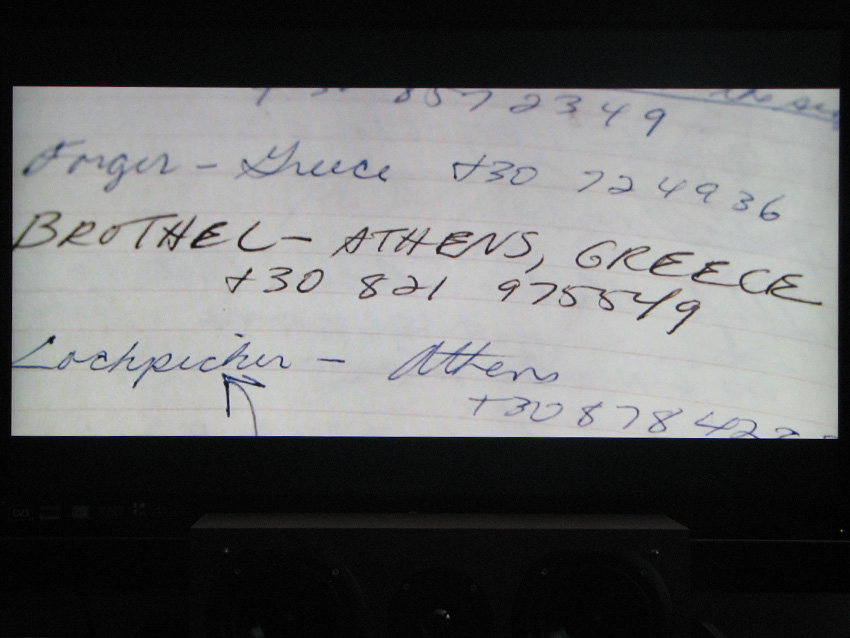 8572349
Forger - Greece +30 724936
BROTHEL - ATHENS, GREECE
+30 821 975549
Lockpicker - Athens
+30 878 42